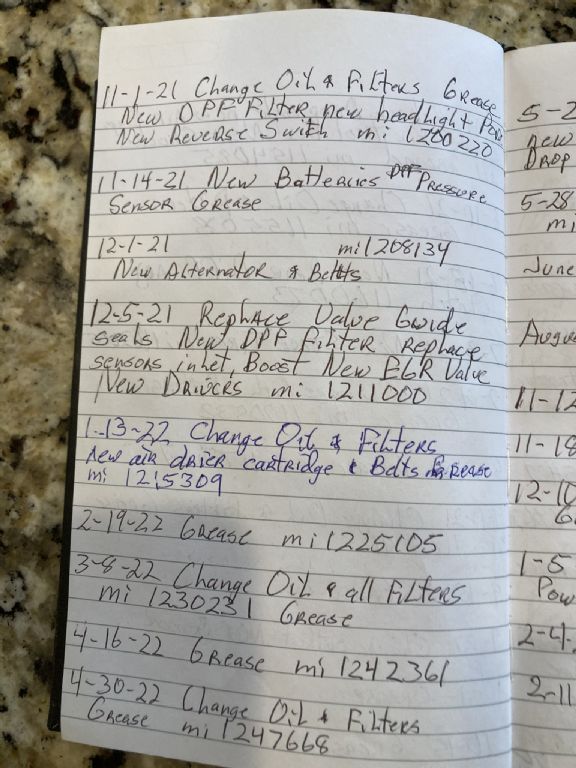 11-1-21 Change Oil & Filters Grease
New DPF Filter new headlight
New Reverse Swith mi 1200220
11-14-21 New Batteries DPF Pressure
Sensor Grease
12-1-21 mi 1208134
New Alternator & Beltts
12-5-21 Replace Valve Gwide
seals New DPF Filter Replace
sensors, inlet, Boost New EGR Valve
New Drivers mi 1211000
1-13-22 Change Oil & Filters
New air drier cartridge & Belts Grease
mi 1215309
2-19-22 Grease mi 1225105
3-8-22 Change Oil & all Filters
mi 1230231 Grease
4-16-22 Grease mi 1242361
4-30-22 Change Oil & Filters
Grease mi 1247668
5-2
New
Drop
5-28
mi
June
Augu
11-12
11-18
12-10
G
1-5
Pow
2-4
2-11